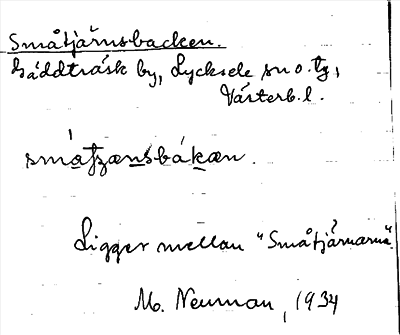 Småtjärnsbacken.
Gäddträsk by, Lycksele sn o. tg,
Västerb. l.
smátjænsbákæn.
Ligger mellan "Småtjärnarna".
M. Neuman, 1934